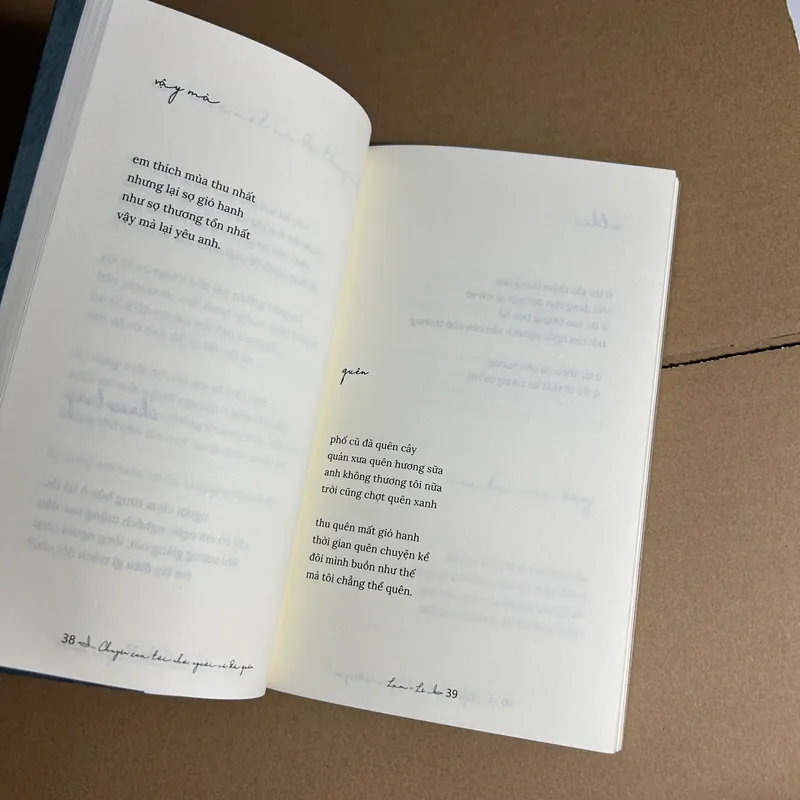 vậy mà
em thích mùa thu nhất
nhưng lại sợ gió hanh
như sợ thương tổn nhất
vậy mà lại yêu anh.
38
Chuyện con tôi nhà người
quên
phố cũ đã quên cây
quán xưa quên hương sữa
anh không thương tôi nữa
trời cũng chợt quên xanh
thu quên mất gió hanh
thời gian quên chuyện kể
đôi mình buồn như thế
mà tôi chẳng thể quên.
39